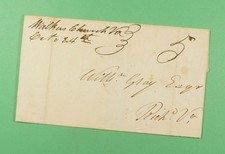 Walkers Church Va
Octr 24th
5
Willm Gray Esqr
Richd Va